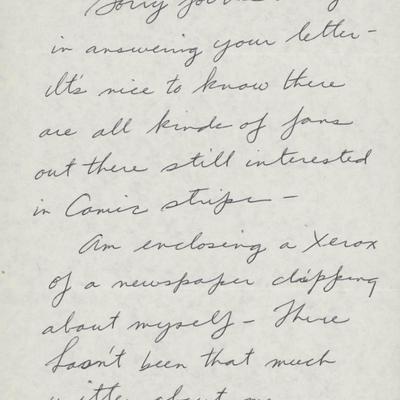 Sorry for
in answering your letter -
It's nice to know there
are all kinds of fans
out there still interested
in Comic strips -
Am enclosing a Xerox
of a newspaper clipping
about myself - There
hasn't been that much
written about me